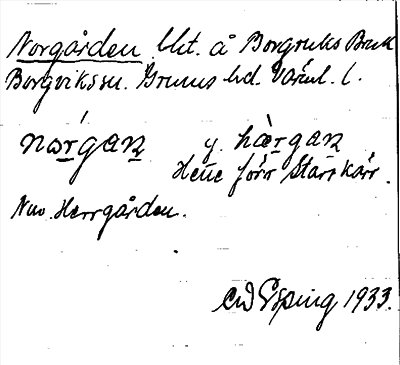 Norgården bbt. å Borgviks Bruk
Borgvikssn. Grums hd. Värml. l.
nórgan y. hærgan
Hette förr Starrkärr.
Nuv. Herrgården.
1933.